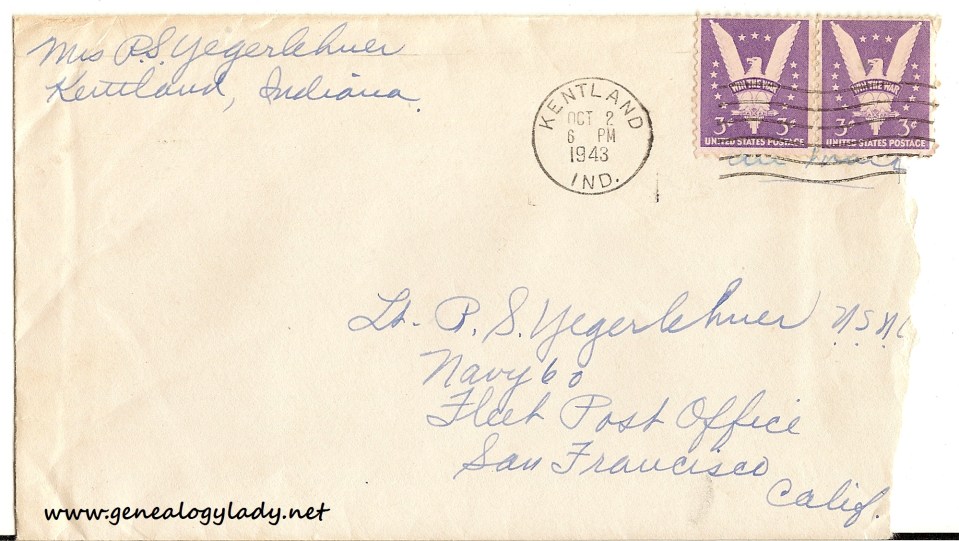 Mrs R.S. Yegerlehner
Kentland, Indiana.
KENTLAND
OCT 2
6 PM
1943
IND.
WIN THE WAR
3¢ 3¢
UNITED STATES POSTAGE
WIN THE WAR
3¢ 3¢
UNITED STATES POSTAGE
Lt. R. S. Yegerlehner
Navy 60
Fleet Post Office
San Francisco
Calif.
www.genealogylady.net